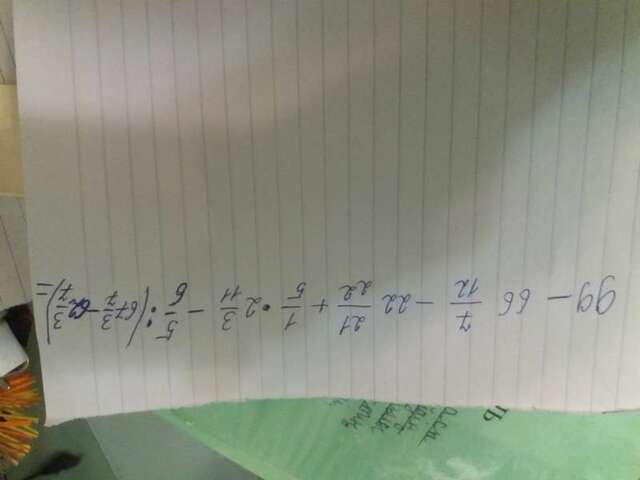 99 - 66 7/12 - 22 21/22 + 1/5 • 2 3/11 - 5/6 : (67 3/7 - 62 3/7) =